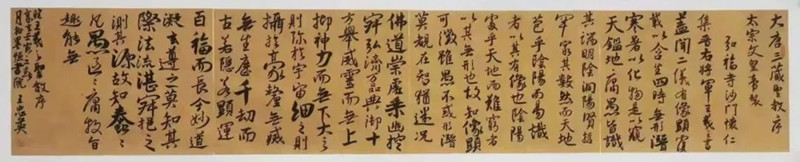 大唐三藏聖教序
太宗文皇帝製
弘福寺沙門懷仁
集晉右將軍王羲之書
蓋聞二儀有像顯覆
載以含生四時無形潛
寒暑以化物是以窺
天鑑地庸愚皆識
其端明陰洞陽賢哲
罕窮其數然而天地
苞乎陰陽而易識
者以其有像也陰陽
處乎天地而難窮者
以其無形也故知像顯
可徵雖愚不惑形潛
莫覩在智猶迷況
佛道崇虛乘幽控
寂弘濟萬品典御十
方舉威靈而無上
抑神力而無下大之
則彌於宇宙細之則
攝於毫釐無滅
無生歷千劫而
古若隱若顯運
百福而長今妙道
凝玄遵之莫知其
際法流湛寂挹之
測其源故知蠢蠢
凡愚區區庸旨
趣能無
王羲之聖教序
王忠英